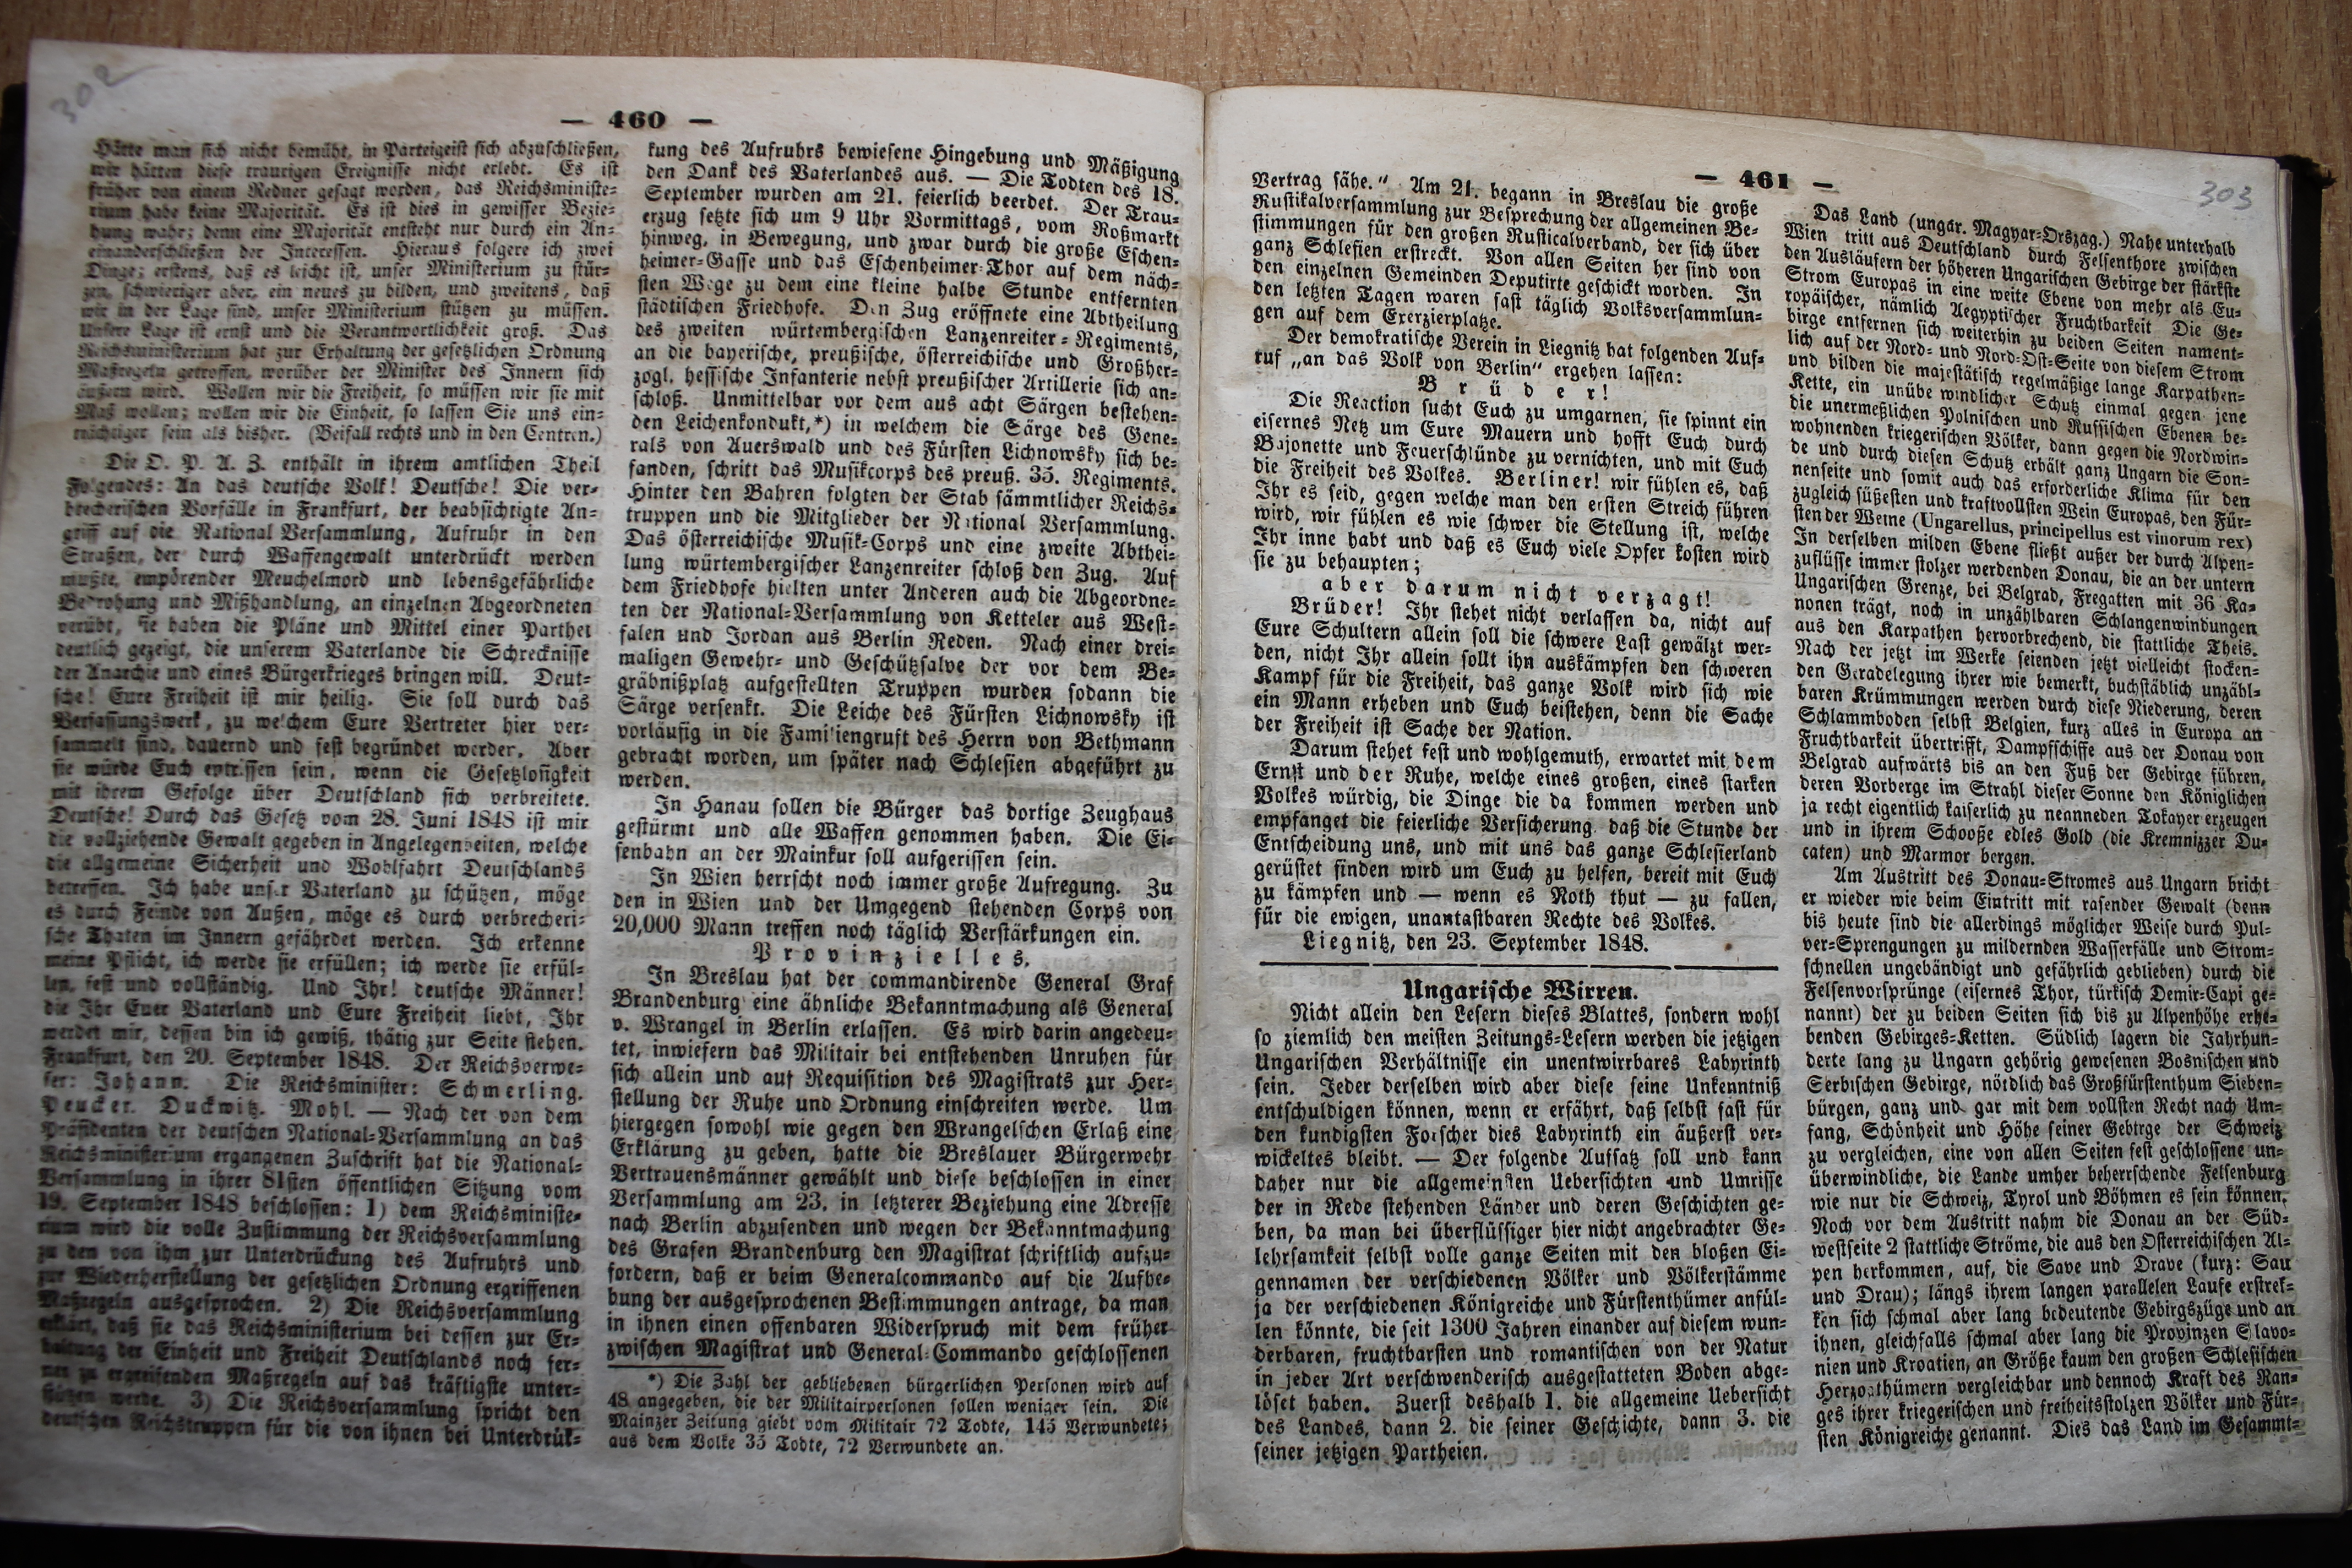 302
— 460 —
Hätte man sich nicht bemüht, in Parteigeist sich abzuschließen,
wir hätten diese traurigen Ereignisse nicht erlebt. Es ist
früher von einem Redner gesagt worden, das Reichsministe-
rium habe keine Majorität. Es ist dies in gewisser Bezie-
hung wahr; denn eine Majorität entsteht nur durch ein An-
einanderschließen der Interessen. Hieraus folgere ich zwei
Dinge; erstens, daß es leicht ist, unser Ministerium zu stür-
zen, schwieriger aber, ein neues zu bilden, und zweitens, daß
wir in der Lage sind, unser Ministerium stützen zu müssen.
Unsere Lage ist ernst und die Verantwortlichkeit groß. Das
Reichsministerium hat zur Erhaltung der gesetzlichen Ordnung
Maßregeln getroffen, worüber der Minister des Innern sich
äußern wird. Wollen wir die Freiheit, so müssen wir sie mit
Maß wollen; wollen wir die Einheit, so lassen Sie uns ein-
trächtiger sein als bisher. (Beifall rechts und in den Centren.)
Die O. P. A. Z. enthält in ihrem amtlichen Theil
Folgendes: An das deutsche Volk! Deutsche! Die ver-
brecherischen Vorfälle in Frankfurt, der beabsichtigte An-
griff auf die National Versammlung, Aufruhr in den
Straßen, der durch Waffengewalt unterdrückt werden
mußte, empörender Meuchelmord und lebensgefährliche
Bedrohung und Mißhandlung, an einzelnen Abgeordneten
verübt, sie haben die Pläne und Mittel einer Parthei
deutlich gezeigt, die unserem Vaterlande die Schrecknisse
der Anarchie und eines Bürgerkrieges bringen will. Deut-
sche! Eure Freiheit ist mir heilig. Sie soll durch das
Verfassungswerk, zu welchem Eure Vertreter hier ver-
sammelt sind, dauernd und fest begründet werden. Aber
sie würde Euch entrissen sein, wenn die Gesetzlosigkeit
mit ihrem Gefolge über Deutschland sich verbreitete.
Deutsche! Durch das Gesetz vom 28. Juni 1848 ist mir
die vollziehende Gewalt gegeben in Angelegenheiten, welche
die allgemeine Sicherheit und Wohlfahrt Deutschlands
betreffen. Ich habe unser Vaterland zu schützen, möge
es durch Feinde von Außen, möge es durch verbrecheri-
sche Thaten im Innern gefährdet werden. Ich erkenne
meine Pflicht, ich werde sie erfüllen; ich werde sie erfül-
len, fest und vollständig. Und Ihr! deutsche Männer!
die Ihr Euer Vaterland und Eure Freiheit liebt, Ihr
werdet mir, dessen bin ich gewiß, thätig zur Seite stehen.
Frankfurt, den 20. September 1848. Der Reichsverwe-
ser: Johann. Die Reichsminister: Schmerling.
Peucker. Duckwitz. Mohl. — Nach der von dem
Präsidenten der deutschen National-Versammlung an das
Reichsministerium ergangenen Zuschrift hat die National-
Versammlung in ihrer 81sten öffentlichen Sitzung vom
19. September 1848 beschlossen: 1) dem Reichsministe-
rium wird die volle Zustimmung der Reichsversammlung
zu den von ihm zur Unterdrückung des Aufruhrs und
zur Wiederherstellung der gesetzlichen Ordnung ergriffenen
Maßregeln ausgesprochen. 2) Die Reichsversammlung
erklärt, daß sie das Reichsministerium bei dessen zur Er-
haltung der Einheit und Freiheit Deutschlands noch fer-
ner zu ergreifenden Maßregeln auf das kräftigste unter-
stützen werde. 3) Die Reichsversammlung spricht den
deutschen Reichstruppen für die von ihnen bei Unterdrük-
kung des Aufruhrs bewiesene Hingebung und Mäßigung
den Dank des Vaterlandes aus. — Die Todten des 18.
September wurden am 21. feierlich beerdet. Der Trau-
erzug setzte sich um 9 Uhr Vormittags, vom Roßmarkt
hinweg, in Bewegung, und zwar durch die große Eschen-
heimer-Gasse und das Eschenheimer-Thor auf dem näch-
sten Wege zu dem eine kleine halbe Stunde entfernten
städtischen Friedhofe. Den Zug eröffnete eine Abtheilung
des zweiten würtembergischen Lanzenreiter-Regiments,
an die bayerische, preußische, österreichische und Großher-
zogl. hessische Infanterie nebst preußischer Artillerie sich an-
schloß. Unmittelbar vor dem aus acht Särgen bestehen-
den Leichenkondukt,*) in welchem die Särge des Gene-
rals von Auerswald und des Fürsten Lichnowsky sich be-
fanden, schritt das Musikcorps des preuß. 35. Regiments.
Hinter den Bahren folgten der Stab sämmtlicher Reichs-
truppen und die Mitglieder der National Versammlung.
Das österreichische Musik-Corps und eine zweite Abthei-
lung würtembergischer Lanzenreiter schloß den Zug. Auf
dem Friedhofe hielten unter Anderen auch die Abgeordne-
ten der National-Versammlung von Ketteler aus West-
falen und Jordan aus Berlin Reden. Nach einer drei-
maligen Gewehr- und Geschützsalve der vor dem Be-
gräbnißplatz aufgestellten Truppen wurden sodann die
Särge versenkt. Die Leiche des Fürsten Lichnowsky ist
vorläufig in die Familiengruft des Herrn von Bethmann
gebracht worden, um später nach Schlesien abgeführt zu
werden.
In Hanau sollen die Bürger das dortige Zeughaus
gestürmt und alle Waffen genommen haben. Die Ei-
senbahn an der Mainkur soll aufgerissen sein.
In Wien herrscht noch immer große Aufregung. Zu
den in Wien und der Umgegend stehenden Corps von
20,000 Mann treffen noch täglich Verstärkungen ein.
Provinzielles.
In Breslau hat der commandirende General Graf
Brandenburg eine ähnliche Bekanntmachung als General
v. Wrangel in Berlin erlassen. Es wird darin angedeu-
tet, inwiefern das Militair bei entstehenden Unruhen für
sich allein und auf Requisition des Magistrats zur Her-
stellung der Ruhe und Ordnung einschreiten werde. Um
hiergegen sowohl wie gegen den Wrangelschen Erlaß eine
Erklärung zu geben, hatte die Breslauer Bürgerwehr
Vertrauensmänner gewählt und diese beschlossen in einer
Versammlung am 23. in letzterer Beziehung eine Adresse
nach Berlin abzusenden und wegen der Bekanntmachung
des Grafen Brandenburg den Magistrat schriftlich aufzu-
fordern, daß er beim Generalcommando auf die Aufhe-
bung der ausgesprochenen Bestimmungen antrage, da man
in ihnen einen offenbaren Widerspruch mit dem früher
zwischen Magistrat und General-Commando geschlossenen
*) Die Zahl der gebliebenen bürgerlichen Personen wird auf
48 angegeben, die der Militairpersonen sollen weniger sein. Die
Mainzer Zeitung giebt vom Militair 72 Todte, 145 Verwundete;
aus dem Volke 35 Todte, 72 Verwundete an.
— 461 —
303
Vertrag sähe." Am 21. begann in Breslau die große
Rustikalversammlung zur Besprechung der allgemeinen Be-
stimmungen für den großen Rusticalverband, der sich über
ganz Schlesien erstreckt. Von allen Seiten her sind von
den einzelnen Gemeinden Deputirte geschickt worden. In
den letzten Tagen waren fast täglich Volksversammlun-
gen auf dem Exerzierplatze.
Der demokratische Verein in Liegnitz hat folgenden Auf-
ruf „an das Volk von Berlin" ergehen lassen:
Brüder!
Die Reaction sucht Euch zu umgarnen, sie spinnt ein
eisernes Netz um Eure Mauern und hofft Euch durch
Bajonette und Feuerschlünde zu vernichten, und mit Euch
die Freiheit des Volkes. Berliner! wir fühlen es, daß
Ihr es seid, gegen welche man den ersten Streich führen
wird, wir fühlen es wie schwer die Stellung ist, welche
Ihr inne habt und daß es Euch viele Opfer kosten wird
sie zu behaupten;
aber darum nicht verzagt!
Brüder! Ihr stehet nicht verlassen da, nicht auf
Eure Schultern allein soll die schwere Last gewälzt wer-
den, nicht Ihr allein sollt ihn auskämpfen den schweren
Kampf für die Freiheit, das ganze Volk wird sich wie
ein Mann erheben und Euch beistehen, denn die Sache
der Freiheit ist Sache der Nation.
Darum stehet fest und wohlgemuth, erwartet mit dem
Ernst und der Ruhe, welche eines großen, eines starken
Volkes würdig, die Dinge die da kommen werden und
empfanget die feierliche Versicherung daß die Stunde der
Entscheidung uns, und mit uns das ganze Schlesierland
gerüstet finden wird um Euch zu helfen, bereit mit Euch
zu kämpfen und — wenn es Noth thut — zu fallen,
für die ewigen, unantastbaren Rechte des Volkes.
Liegnitz, den 23. September 1848.
Ungarische Wirren.
Nicht allein den Lesern dieses Blattes, sondern wohl
so ziemlich den meisten Zeitungs-Lesern werden die jetzigen
Ungarischen Verhältnisse ein unentwirrbares Labyrinth
sein. Jeder derselben wird aber diese seine Unkenntniß
entschuldigen können, wenn er erfährt, daß selbst fast für
den kundigsten Forscher dies Labyrinth ein äußerst ver-
wickeltes bleibt. — Der folgende Aufsatz soll und kann
daher nur die allgemeinsten Uebersichten und Umrisse
der in Rede stehenden Länder und deren Geschichten ge-
ben, da man bei überflüssiger hier nicht angebrachter Ge-
lehrsamkeit selbst volle ganze Seiten mit den bloßen Ei-
gennamen der verschiedenen Völker und Völkerstämme
ja der verschiedenen Königreiche und Fürstenthümer anfül-
len könnte, die seit 1300 Jahren einander auf diesem wun-
derbaren, fruchtbarsten und romantischen von der Natur
in jeder Art verschwenderisch ausgestatteten Boden abge-
löset haben. Zuerst deshalb 1. die allgemeine Uebersicht
des Landes, dann 2. die seiner Geschichte, dann 3. die
seiner jetzigen Partheien.
Das Land (ungár. Magyar-Orszag.) Nahe unterhalb
Wien tritt aus Deutschland durch Felsenthore zwischen
den Ausläufern der höheren Ungarischen Gebirge der stärkste
Strom Europas in eine weite Ebene von mehr als Eu-
ropäischer, nämlich Aegyptischer Fruchtbarkeit Die Ge-
birge entfernen sich weiterhin zu beiden Seiten nament-
lich auf der Nord- und Nord-Ost-Seite von diesem Strom
und bilden die majestätisch regelmäßige lange Karpathen-
Kette, ein unübe windlicher Schutz einmal gegen jene
die unermeßlichen Polnischen und Russischen Ebenen be-
wohnenden kriegerischen Völker, dann gegen die Nordwin-
de und durch diesen Schutz erhält ganz Ungarn die Son-
nenseite und somit auch das erforderliche Klima für den
zugleich süßesten und kraftvollsten Wein Europas, den Für-
sten der Weine (Ungarellus, principellus est vinorum rex)
In derselben milden Ebene fließt außer der durch Alpen-
zuflüsse immer stolzer werdenden Donau, die an der untern
Ungarischen Grenze, bei Belgrad, Fregatten mit 36 Ka-
nonen trägt, noch in unzählbaren Schlangenwindungen
aus den Karpathen hervorbrechend, die stattliche Theis.
Nach der jetzt im Werke seienden jetzt vielleicht stocken-
den Geradelegung ihrer wie bemerkt, buchstäblich unzähl-
baren Krümmungen werden durch diese Niederung, deren
Schlammboden selbst Belgien, kurz alles in Europa an
Fruchtbarkeit übertrifft, Dampfschiffe aus der Donau von
Belgrad aufwärts bis an den Fuß der Gebirge führen,
deren Vorberge im Strahl dieser Sonne den Königlichen
ja recht eigentlich kaiserlich zu neanneden Tokayer erzeugen
und in ihrem Schooße edles Gold (die Kremnizzer Du-
caten) und Marmor bergen.
Am Austritt des Donau-Stromes aus Ungarn bricht
er wieder wie beim Eintritt mit rasender Gewalt (denn
bis heute sind die allerdings möglicher Weise durch Pul-
ver-Sprengungen zu mildernden Wasserfälle und Strom-
schnellen ungebändigt und gefährlich geblieben) durch die
Felsenvorsprünge (eisernes Thor, türkisch Demir-Capi ge-
nannt) der zu beiden Seiten sich bis zu Alpenhöhe erhe-
benden Gebirges-Ketten. Südlich lagern die Jahrhun-
derte lang zu Ungarn gehörig gewesenen Bosnischen und
Serbischen Gebirge, nördlich das Großfürstenthum Sieben-
bürgen, ganz und gar mit dem vollsten Recht nach Um-
fang, Schönheit und Höhe seiner Gebirge der Schweiz
zu vergleichen, eine von allen Seiten fest geschlossene un-
überwindliche, die Lande umher beherrschende Felsenburg
wie nur die Schweiz, Tyrol und Böhmen es sein können.
Noch vor dem Austritt nahm die Donau an der Süd-
westseite 2 stattliche Ströme, die aus den Österreichischen Al-
pen herkommen, auf, die Save und Drave (kurz: Sau
und Drau); längs ihrem langen parallelen Laufe erstrek-
ken sich schmal aber lang bedeutende Gebirgszüge und an
ihnen, gleichfalls schmal aber lang die Provinzen Slavo-
nien und Kroatien, an Größe kaum den großen Schlesischen
Herzogthümern vergleichbar und dennoch Kraft des Ran-
ges ihrer kriegerischen und freiheitsstolzen Völker und Für-
sten Königreiche genannt. Dies das Land im Gesammt-